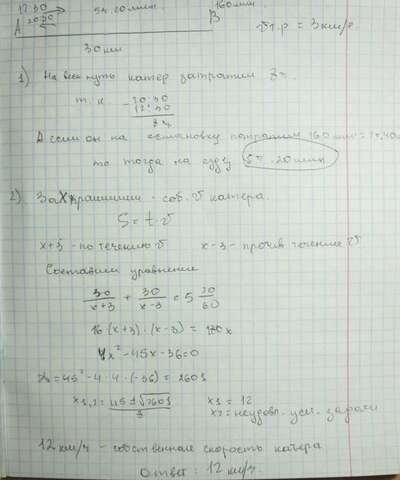 12:30 5ч. 20 мин. 160 мин
A 20:30 B vт.р = 3 км/ч.
30 км
1) На весь путь катер затратил 8ч.
т.к. - 20:30
12:30
8ч
А если он на остановку потратил 160 мин = 2ч,40м
то тогда на езду 5ч. 20 мин
2) За X - соб. v катера.
S = t · v
x+3 - по течению v x-3 - против течения v
Составим уравнение
30/x+3 + 30/x-3 = 5 20/60
16(x+3)·(x-3) = 180x
4x²-45x-36=0
D=45²-4·4·(-36)=2601
x1,2=45±√2601/8 x1=12
x2=неудовл. усл. задачи
12 км/ч - собственная скорость катера
Ответ: 12 км/ч.